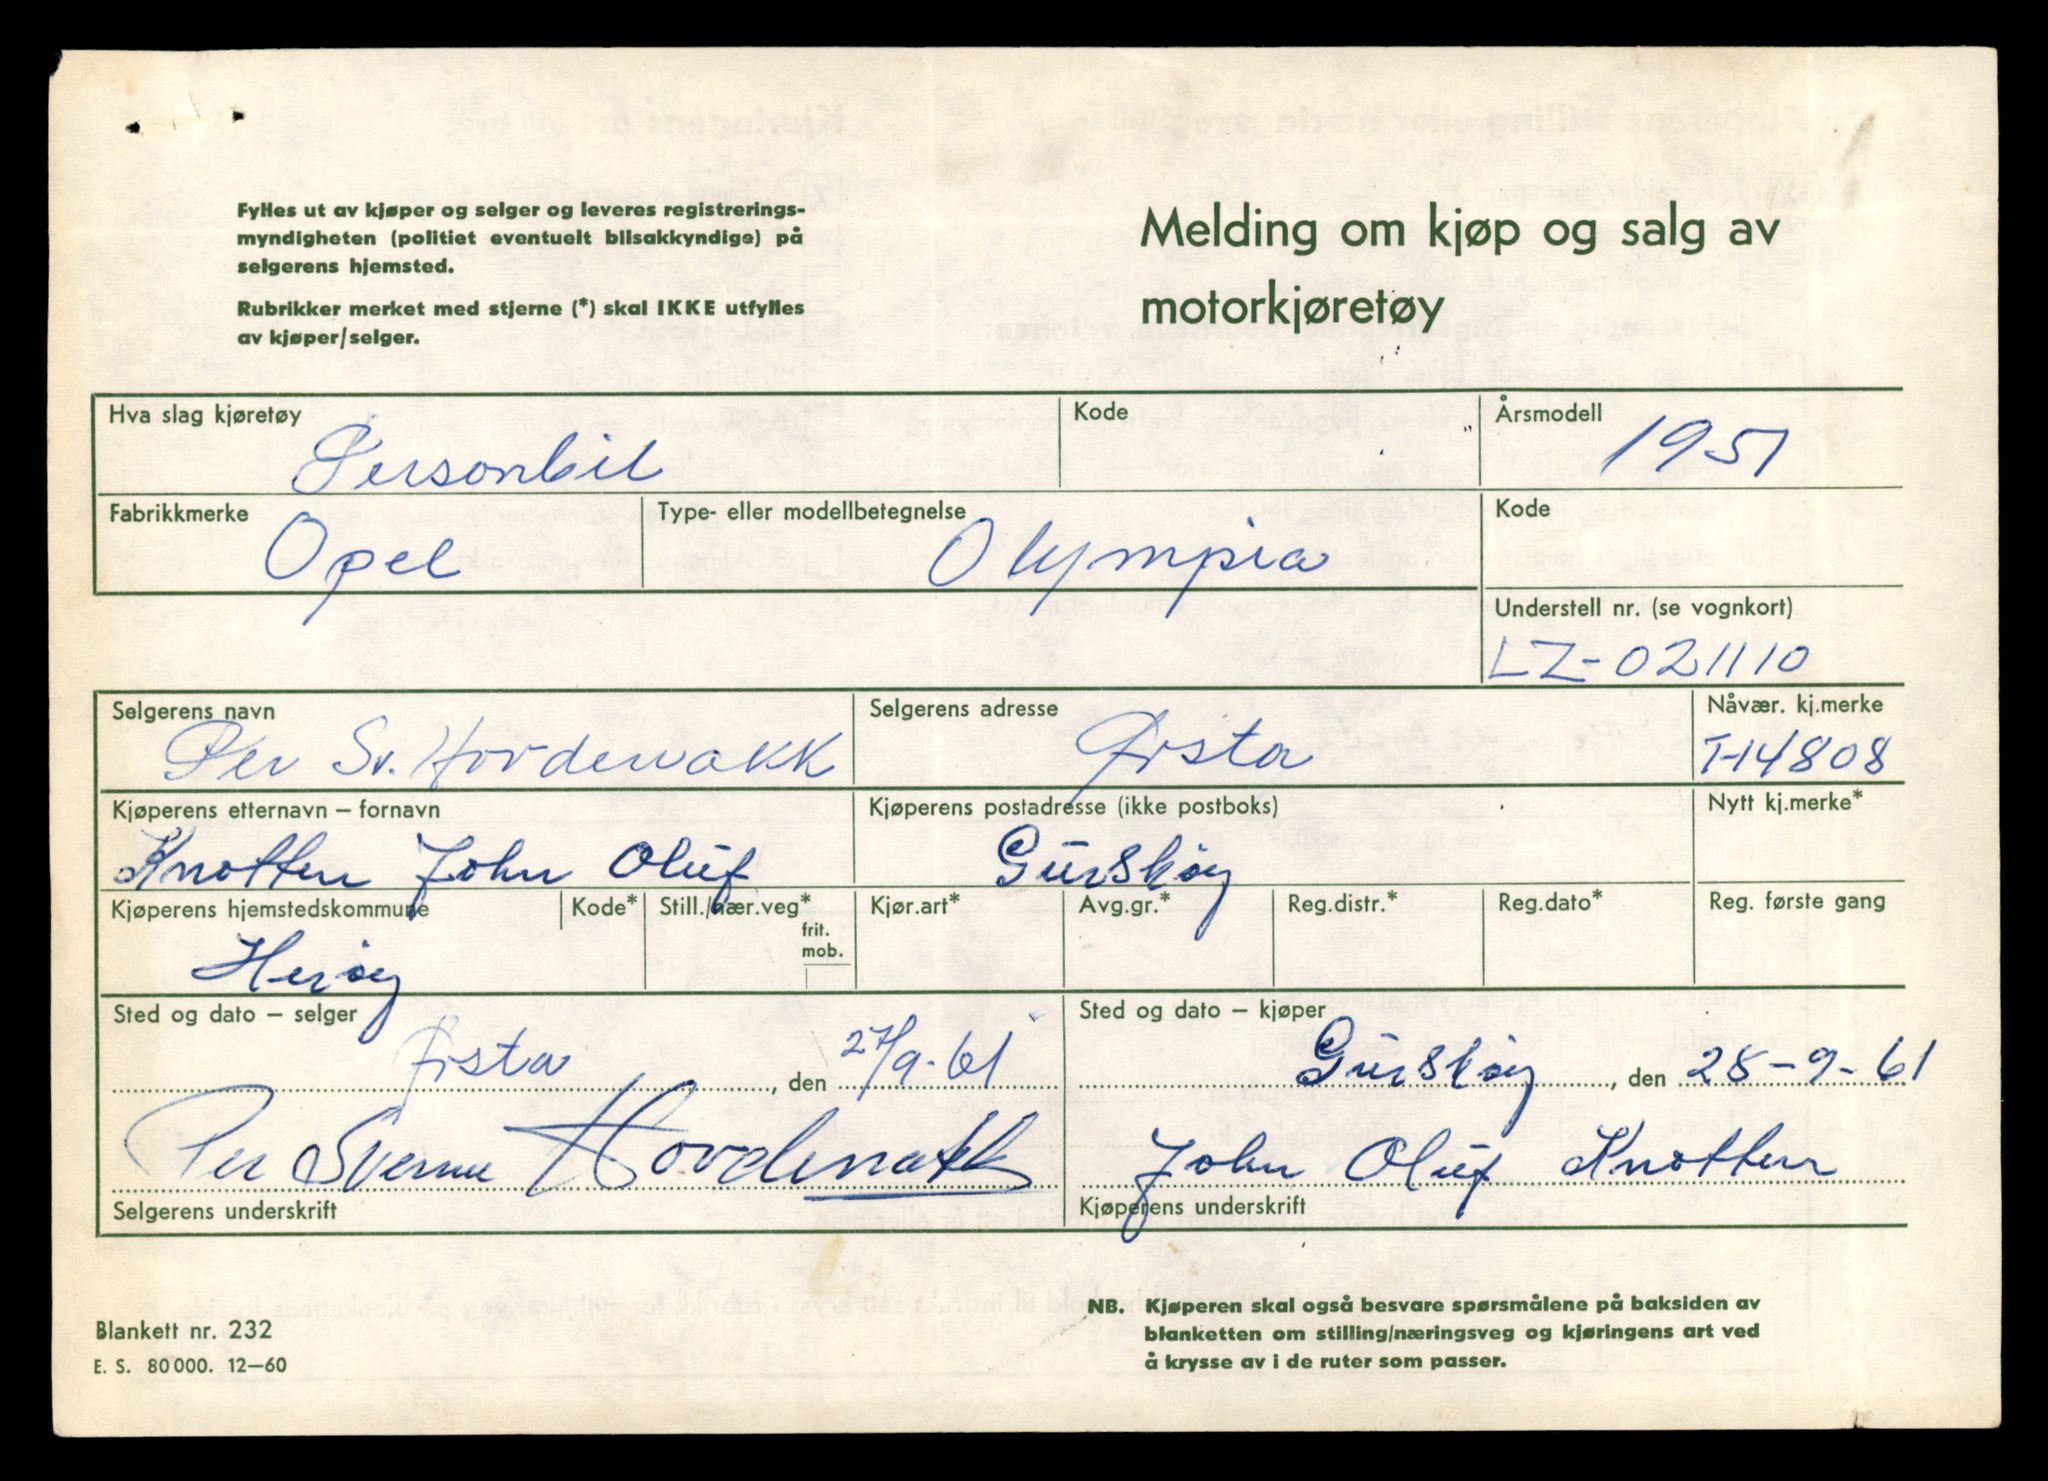 Fylles ut av kjøper og selger og leveres registrerings-
myndigheten (politiet eventuelt bilsakkyndige) på
selgerens hjemsted.
Rubrikker merket med stjerne (*) skal IKKE utfylles
av kjøper/selger.
Melding om kjøp og salg av
motorkjøretøy
Hva slag kjøretøy
Personbil
Kode
Årsmodell
1951
Fabrikkmerke
Opel
Type- eller modellbetegnelse
Olympia
Kode
Understell nr. (se vognkort)
LZ-021110
Selgerens navn
Per Sv. Hovdenakk
Selgerens adresse
Ørsta
Nåvær. kj.merke
T-14808
Kjøperens etternavn – fornavn
Knotten John Oluf
Kjøperens postadresse (ikke postboks)
Gurskøy
Nytt kj.merke*
Kjøperens hjemstedskommune
Herøy
Kode*
Still./nær.veg*
frit.
mob.
Kjør.art*
Avg.gr.*
Reg.distr.*
Reg.dato*
Reg. første gang
Sted og dato – selger
Ørsta , den 27/9-61
Per Sverre Hovdenakk
Selgerens underskrift
Sted og dato – kjøper
Gurskøy , den 28-9-61
John Oluf Knotten
Kjøperens underskrift
NB. Kjøperen skal også besvare spørsmålene på baksiden av
blanketten om stilling/næringsveg og kjøringens art ved
å krysse av i de ruter som passer.
Blankett nr. 232
E. S. 80 000. 12–60